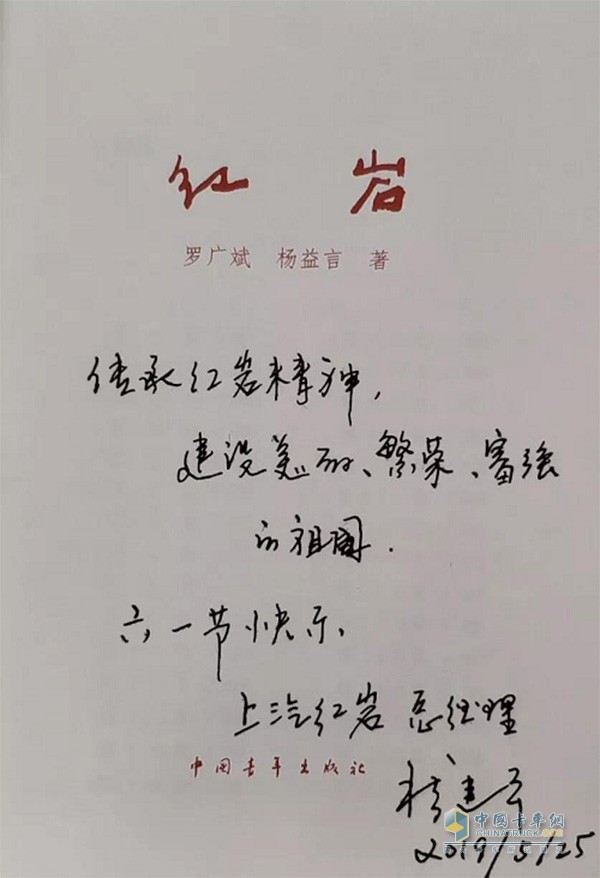 红岩
罗广斌 杨益言 著
传承红岩精神,
建设美丽、繁荣、富强
的祖国.
六一节快乐、
上汽红岩 总经理
中国青年出版社
楼建平
中国卡车网
CHINATRUCK.ORG
2019/5/25